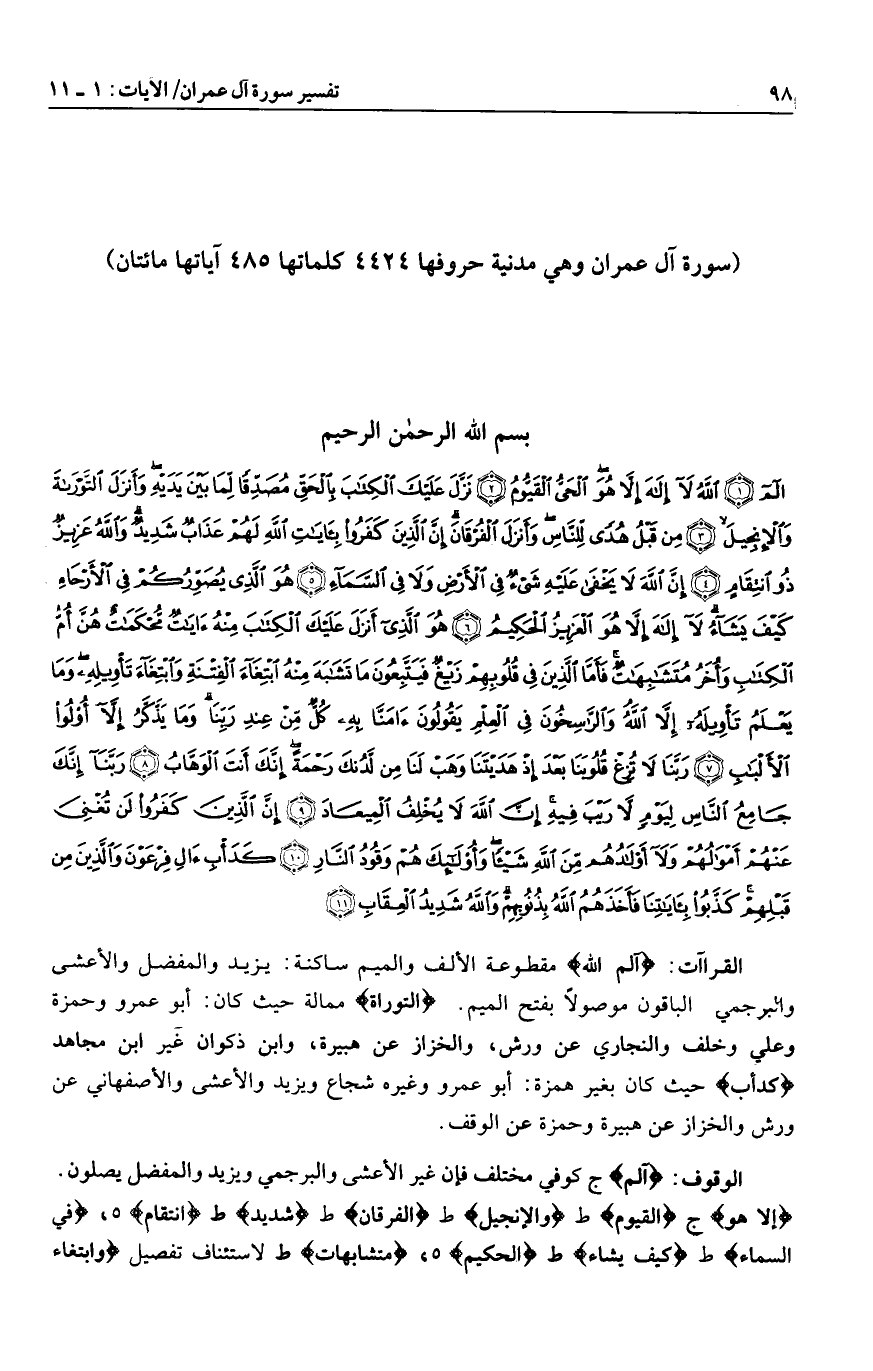 ٩٨ تفسير سورة آل عمران/ الآيات: ١ ـ ١١
(سورة آل عمران وهي مدنية حروفها ٤٤٢٤ كلماتها ٤٨٥ آياتها مائتان)
بسم الله الرحمٰن الرحيم
الٓمٓ ﴿١﴾ ٱللَّهُ لَآ إِلَٰهَ إِلَّا هُوَ ۖ ٱلْحَىُّ ٱلْقَيُّومُ ﴿٢﴾ نَزَّلَ عَلَيْكَ ٱلْكِتَٰبَ بِٱلْحَقِّ مُصَدِّقًا لِّمَا بَيْنَ يَدَيْهِ ۖ وَأَنزَلَ ٱلتَّوْرَىٰةَ
وَٱلْإِنجِيلَ ۙ ﴿٣﴾ مِن قَبْلُ هُدًى لِّلنَّاسِ ۖ وَأَنزَلَ ٱلْفُرْقَانَ ۗ إِنَّ ٱلَّذِينَ كَفَرُوا۟ بِـَٔايَٰتِ ٱللَّهِ لَهُمْ عَذَابٌ شَدِيدٌ ۗ وَٱللَّهُ عَزِيزٌ
ذُو ٱنتِقَامٍ ﴿٤﴾ إِنَّ ٱللَّهَ لَا يَخْفَىٰ عَلَيْهِ شَىْءٌ فِى ٱلْأَرْضِ وَلَا فِى ٱلسَّمَآءِ ﴿٥﴾ هُوَ ٱلَّذِى يُصَوِّرُكُمْ فِى ٱلْأَرْحَامِ
كَيْفَ يَشَآءُ ۗ لَآ إِلَٰهَ إِلَّا هُوَ ٱلْعَزِيزُ ٱلْحَكِيمُ ﴿٦﴾ هُوَ ٱلَّذِىٓ أَنزَلَ عَلَيْكَ ٱلْكِتَٰبَ مِنْهُ ءَايَٰتٌ مُّحْكَمَٰتٌ هُنَّ أُمُّ
ٱلْكِتَٰبِ وَأُخَرُ مُتَشَٰبِهَٰتٌ ۖ فَأَمَّا ٱلَّذِينَ فِى قُلُوبِهِمْ زَيْغٌ فَيَتَّبِعُونَ مَا تَشَٰبَهَ مِنْهُ ٱبْتِغَآءَ ٱلْفِتْنَةِ وَٱبْتِغَآءَ تَأْوِيلِهِۦ ۗ وَمَا
يَعْلَمُ تَأْوِيلَهُۥٓ إِلَّا ٱللَّهُ ۗ وَٱلرَّٰسِخُونَ فِى ٱلْعِلْمِ يَقُولُونَ ءَامَنَّا بِهِۦ كُلٌّ مِّنْ عِندِ رَبِّنَا ۗ وَمَا يَذَّكَّرُ إِلَّآ أُو۟لُوا۟
ٱلْأَلْبَٰبِ ﴿٧﴾ رَبَّنَا لَا تُزِغْ قُلُوبَنَا بَعْدَ إِذْ هَدَيْتَنَا وَهَبْ لَنَا مِن لَّدُنكَ رَحْمَةً ۚ إِنَّكَ أَنتَ ٱلْوَهَّابُ ﴿٨﴾ رَبَّنَآ إِنَّكَ
جَامِعُ ٱلنَّاسِ لِيَوْمٍ لَّا رَيْبَ فِيهِ ۚ إِنَّ ٱللَّهَ لَا يُخْلِفُ ٱلْمِيعَادَ ﴿٩﴾ إِنَّ ٱلَّذِينَ كَفَرُوا۟ لَن تُغْنِىَ
عَنْهُمْ أَمْوَٰلُهُمْ وَلَآ أَوْلَٰدُهُم مِّنَ ٱللَّهِ شَيْـًٔا ۖ وَأُو۟لَٰٓئِكَ هُمْ وَقُودُ ٱلنَّارِ ﴿١٠﴾ كَدَأْبِ ءَالِ فِرْعَوْنَ وَٱلَّذِينَ مِن
قَبْلِهِمْ ۚ كَذَّبُوا۟ بِـَٔايَٰتِنَا فَأَخَذَهُمُ ٱللَّهُ بِذُنُوبِهِمْ ۗ وَٱللَّهُ شَدِيدُ ٱلْعِقَابِ ﴿١١﴾
القراآت: ﴿آلم الله﴾ مقطوعة الألف والميم ساكنة: يزيد والمفضل والأعشى
والبرجمي الباقون موصولاً بفتح الميم. ﴿التوراة﴾ ممالة حيث كان: أبو عمرو وحمزة
وعلي وخلف والنجاري عن ورش، والخزاز عن هبيرة، وابن ذكوان غير ابن مجاهد
﴿كدأب﴾ حيث كان بغير همزة: أبو عمرو وغيره شجاع ويزيد والأعشى والأصفهاني عن
ورش والخزاز عن هبيرة وحمزة عن الوقف.
الوقوف: ﴿آلم﴾ ج كوفي مختلف فإن غير الأعشى والبرجمي ويزيد والمفضل يصلون.
﴿إلا هو﴾ ج ﴿القيوم﴾ ط ﴿والإنجيل﴾ ط ﴿الفرقان﴾ ط ﴿شديد﴾ ط ﴿انتقام﴾ ٥، ﴿في
السماء﴾ ط ﴿كيف يشاء﴾ ط ﴿الحكيم﴾ ٥، ﴿متشابهات﴾ ط لاستئناف تفصيل ﴿وابتغاء